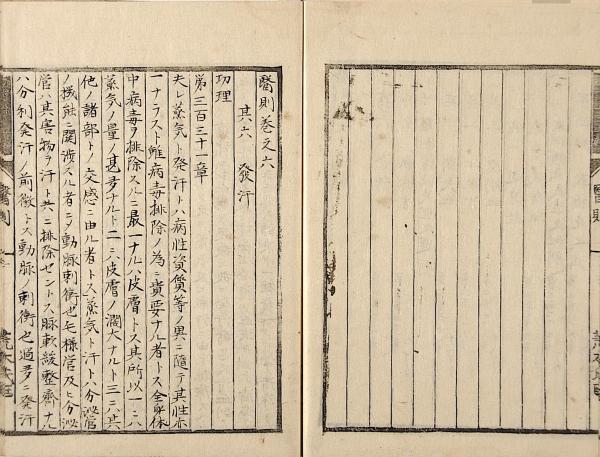 醫則巻之六
其六　發汗
功理
第三百三十一章
夫レ蒸気ト発汗トハ病性資質等ノ異ニ隨テ其性亦
一ナラスト雖病毒排除ノ為ニ貴要ナル者トス全身体
中病毒ヲ排除スルニ最一ナルハ皮膚トス其所以一ハ
蒸気ノ量ノ甚多ナルト二ハ皮膚ノ濶大ナルト三ハ其
他ノ諸部トノ交感ニ由ル者トス蒸気ト汗トハ分泌管
ノ機能ニ関渉スル者ニメ動脈刺衝也毛様管及ヒ分泌
管ハ其害物ヲ汗ト共ニ排除セントス脈軟緩整齊ナル
ハ分利発汗ノ前徴トス動脈ノ刺衝也過多ノ発汗
醫則